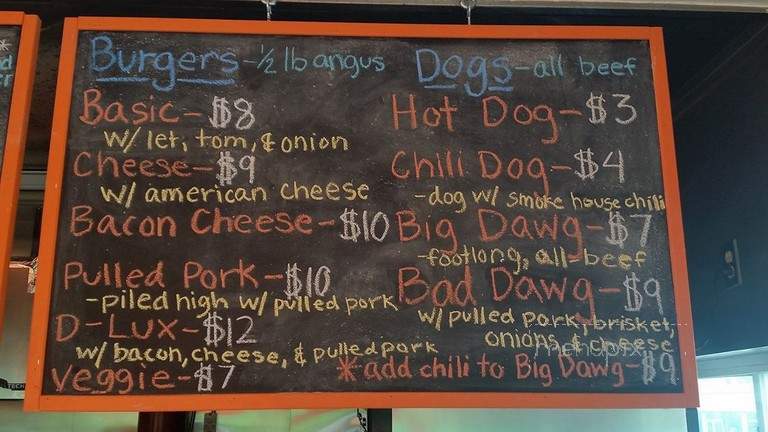 Burgers - 1/2 lb angus
Basic - $8
w/ let, tom, & onion
Cheese - $9
w/ american cheese
Bacon Cheese - $10
Pulled Pork - $10
- piled high w/ pulled pork
D-Lux - $12
w/ bacon, cheese, & pulled pork
Veggie - $7
Dogs - all beef
Hot Dog - $3
Chili Dog - $4
- dog w/ smoke house chili
Big Dawg - $7
- footlong, all-beef
Bad Dawg - $9
w/ pulled pork, brisket,
onions & cheese
* add chili to Big Dawg - $9